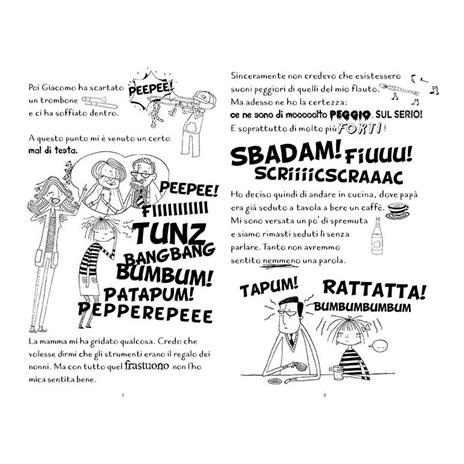 Poi Giacomo ha scartato
un trombone
e ci ha soffiato dentro.
PEEPEE!
A questo punto mi è venuto un certo
mal di testa.
PEEPEE!
FIIIIIIIIIII
TUNZ
BANGBANG
BUMBUM!
PATAPUM!
PEPPEREPEEE
La mamma mi ha gridato qualcosa. Credo che
volesse dirmi che gli strumenti erano il regalo dei
nonni. Ma con tutto quel frastuono non l'ho
mica sentita bene.
7
Sinceramente non credevo che esistessero
suoni peggiori di quelli del mio flauto.
Ma adesso ne ho la certezza:
ce ne sono di moooolto PEGGIO. SUL SERIO!
E soprattutto di molto più FORTI!
SBADAM! FIUUU!
SCRIIIICSCRAAAC
Ho deciso quindi di andare in cucina, dove papà
era già seduto a tavola a bere un caffè.
Mi sono versata un po' di spremuta
e siamo rimasti seduti lì senza
parlare. Tanto non avremmo
sentito nemmeno una parola.
TAPUM!
RATTATTA!
BUMBUMBUMBUM
8